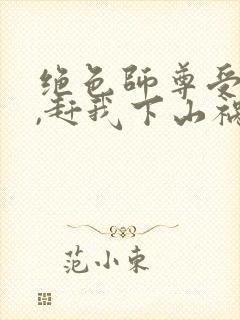 绝色师尊受
,赶我下山祸
范小东